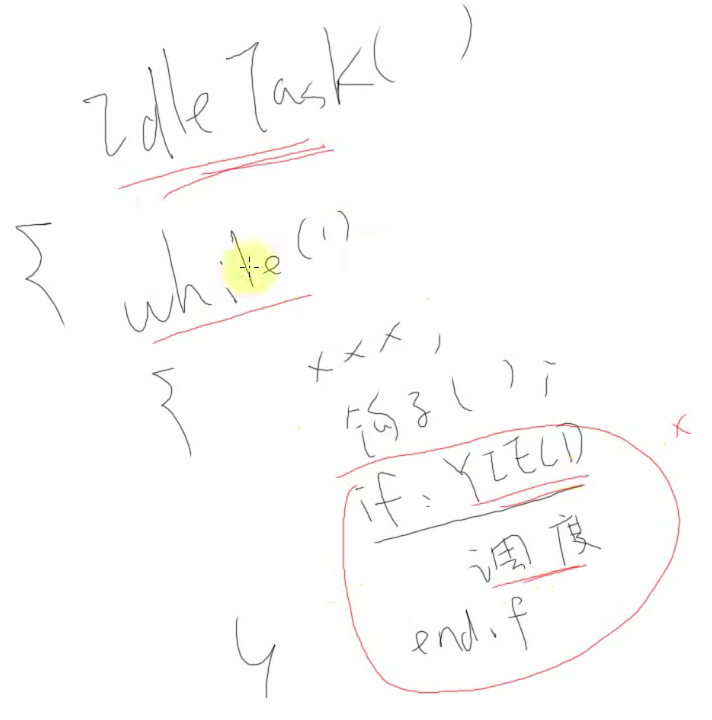 IdleTask( )
{ while(1)
{ xxx,
钩子( );
x
if: YIELD
调度
endif
}